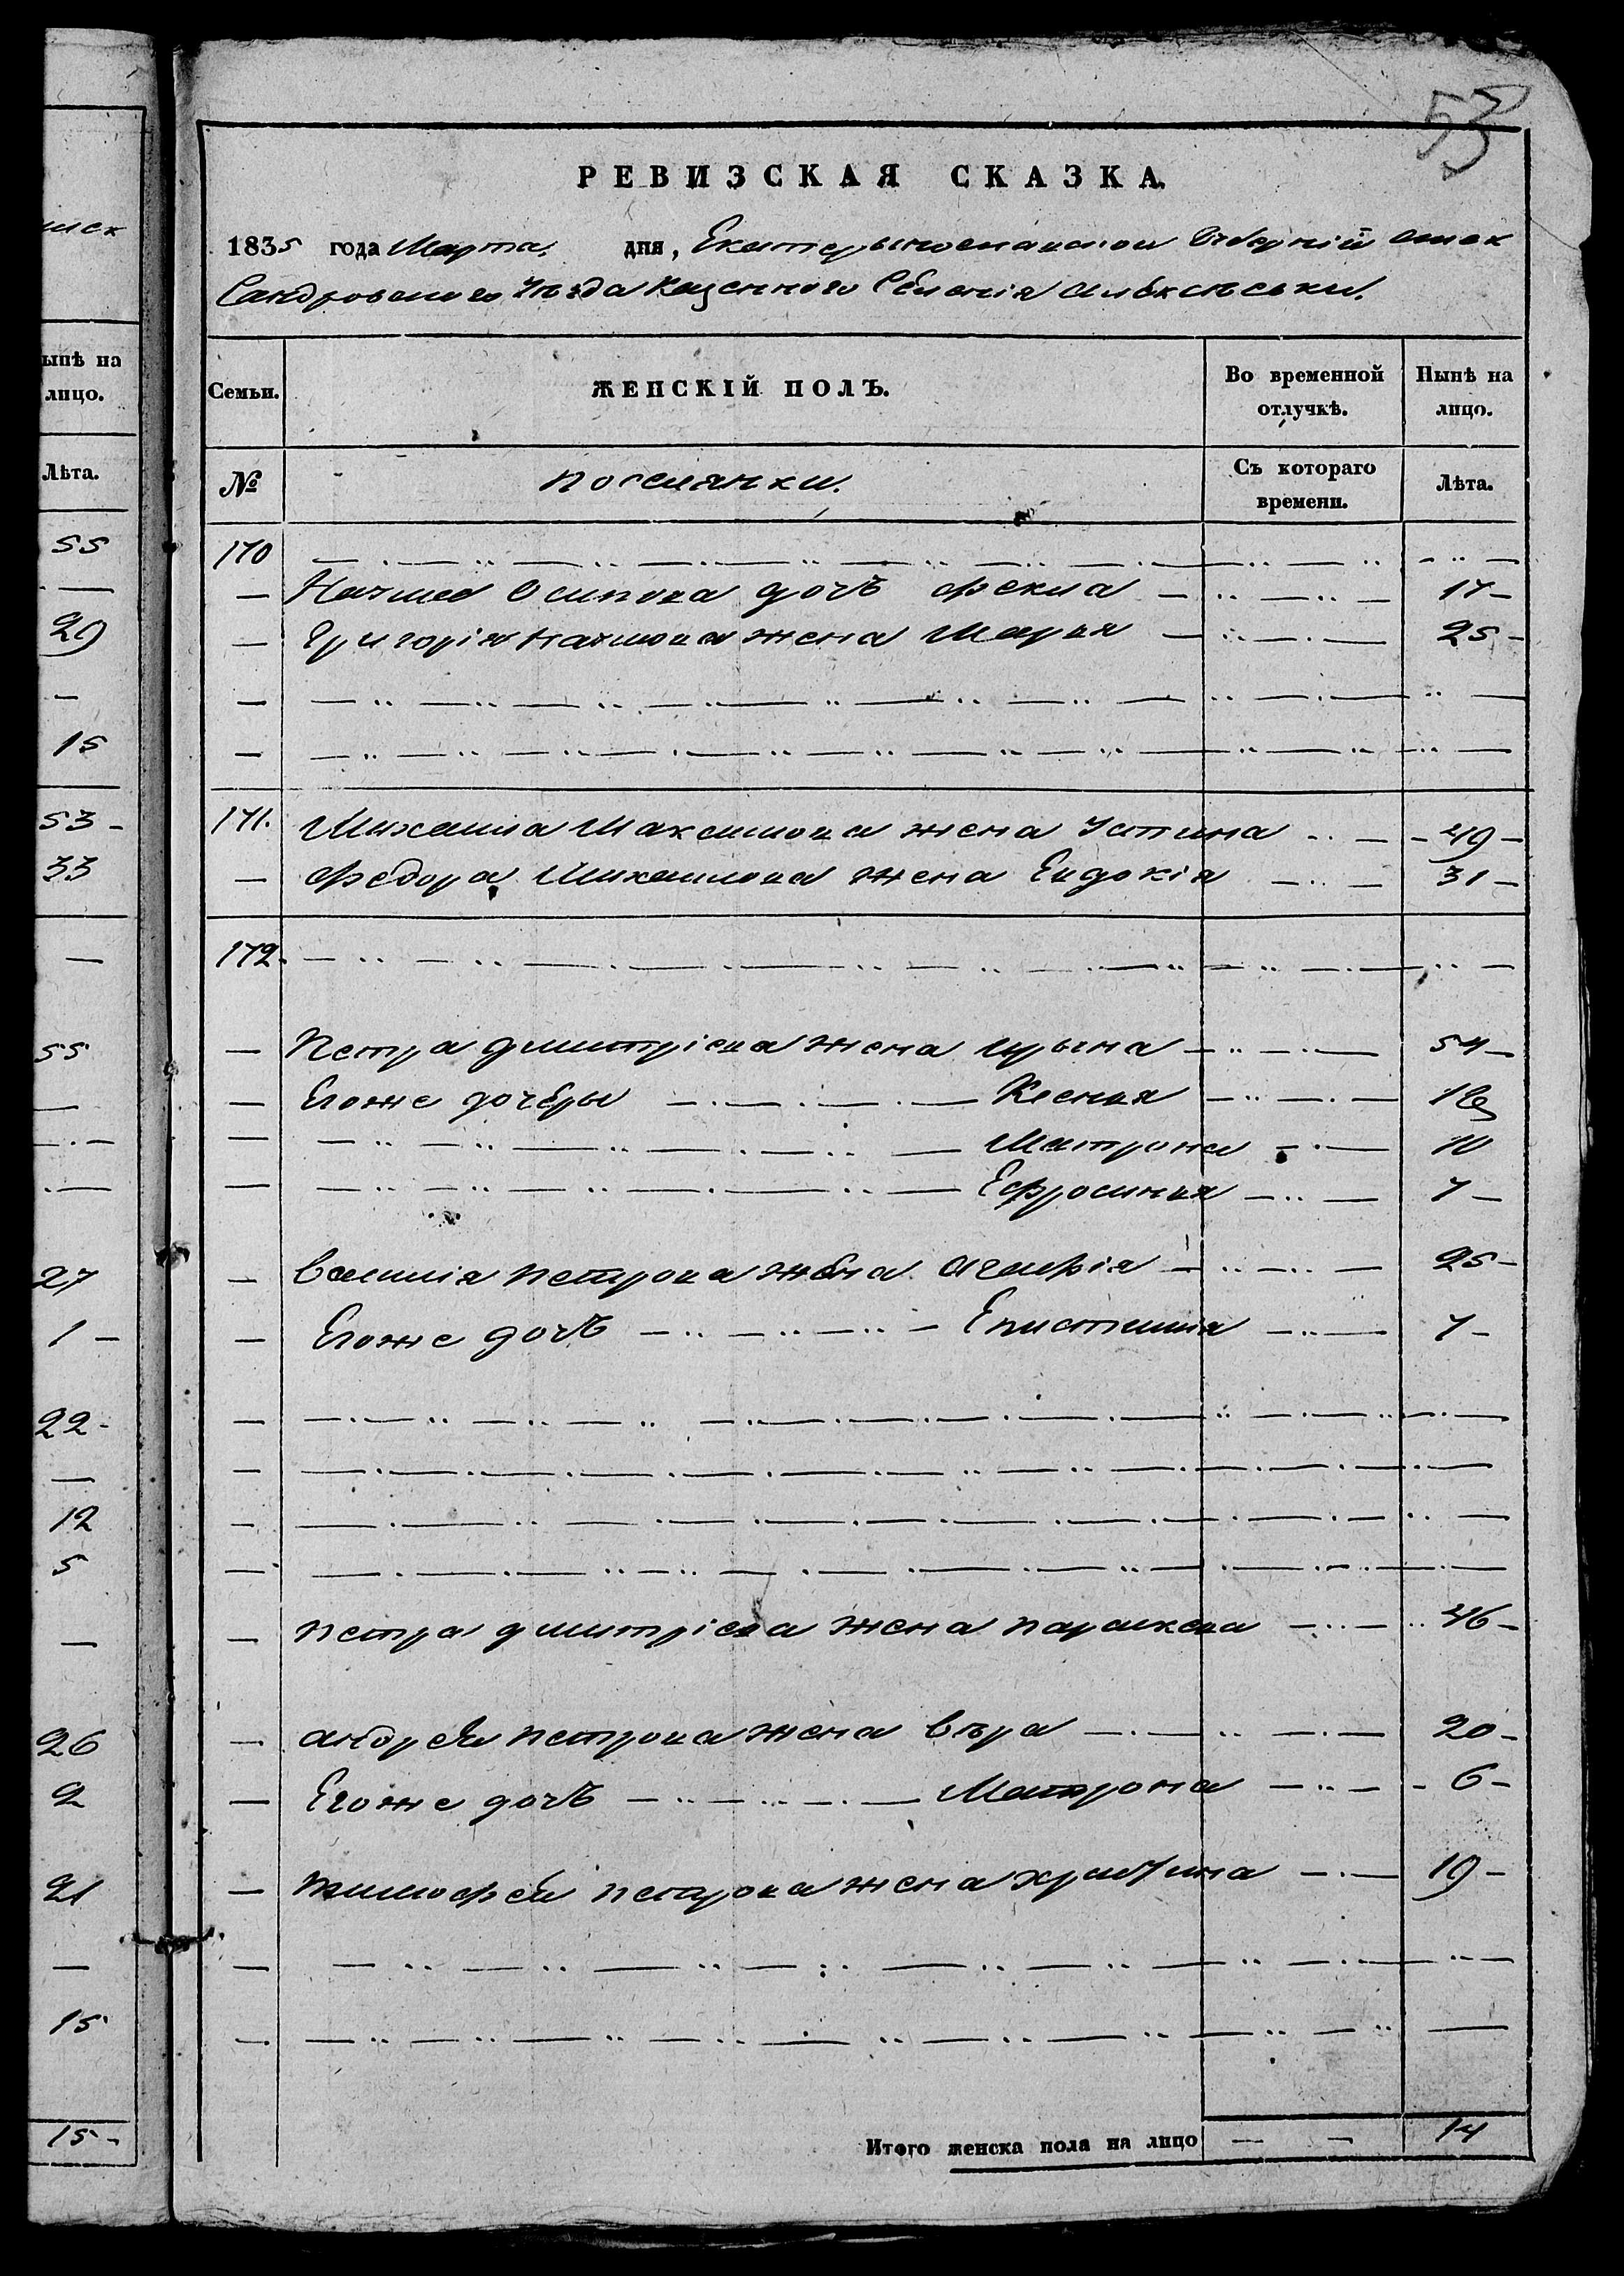 53
РЕВИЗСКАЯ СКАЗКА.
1835 года Марта дня, Екатериносланской Губерніи Алек
Сандровского Уѣзда Казенного Селенія
Семьи. ЖЕНСКІЙ ПОЛЪ. Во временной отлучкѣ. Нынѣ на лицо.
№ поселянки. Съ котораго времени. Лѣта.
170
— Наума Осипова дочь Фекла — 17 —
— Григорія Наумова жена Марья — 25 —
171. Михаила Максимова жена Устина — 49 —
— Федора Михаилова жена Евдокія — 31 —
172.
— Петра Дмитріева жена Ирына — 54 —
— Егоже дочеры — Ксенья — 18
— Матрона — 10
— Ефросинья — 7 —
— Василія Петрова жена Агафія — 25 —
— Егоже дочь — Епистимия — 7 —
— Петра Дмитріева жена Параскева — 46 —
— Андрея Петрова жена Вѣра — 20 —
— Егоже дочь — Матрона — 6 —
— Тимофея Петрова жена Христина — 19 —
Итого женска пола на лицо — — 14
ынѣ на
лицо.
Лѣта.
55
29
15
53 -
33
55
27
1 -
22 -
12
5
26
2
21
15
15 -